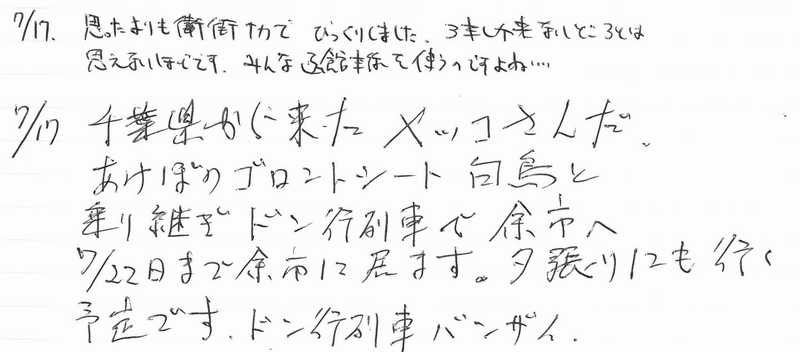 7/17. 思ったよりも衝衝的で びっくりしました。 3本しか来ないところとは
思えないほどです。 みんな函館本線を使うのですよね…
7/17 千葉県から来た ヤッコさんだ。
あけぼのゴロントシート 白鳥と
乗り継ぎ ドン行列車で 余市へ
7/22日まで余市に居ます。夕張りにも行く
予定です. ドン行列車 バンザイ.